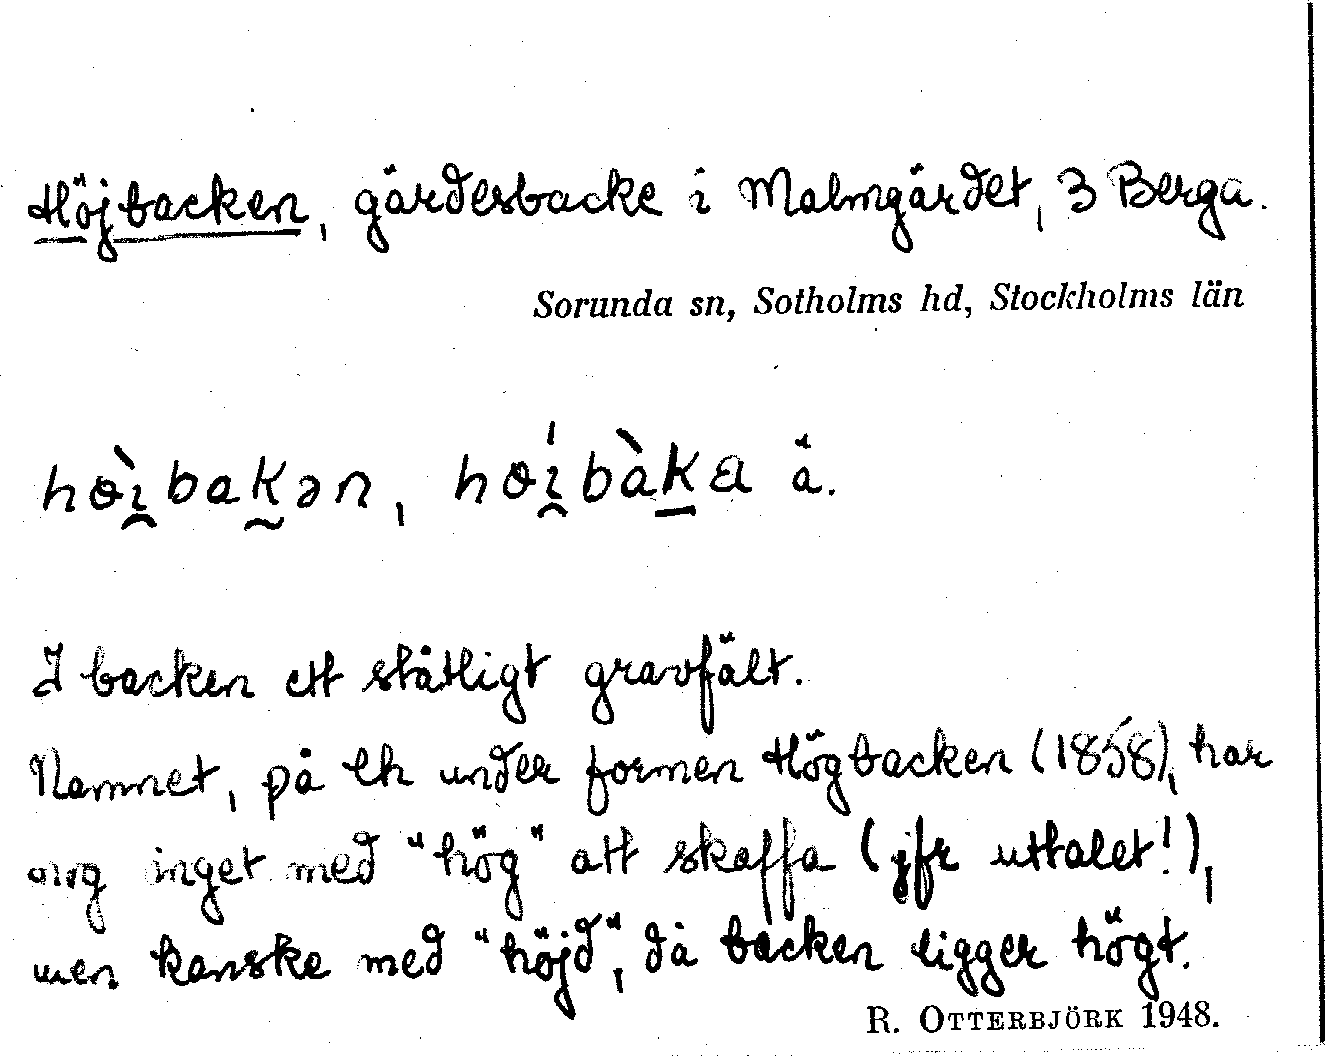 Höjbacken, gärdesbacke i Malmgärdet, 3 Berga.
Sorunda sn, Sotholms hd, Stockholms län
I backen ett ståtligt gravfält.
Namnet, på Ek under formen Högbacken (1858), har
nog inget med "hög" att skaffa (jfr uttalet!),
men kanske med "höjd", då backen ligger högt.
R. OTTERBJÖRK 1948.